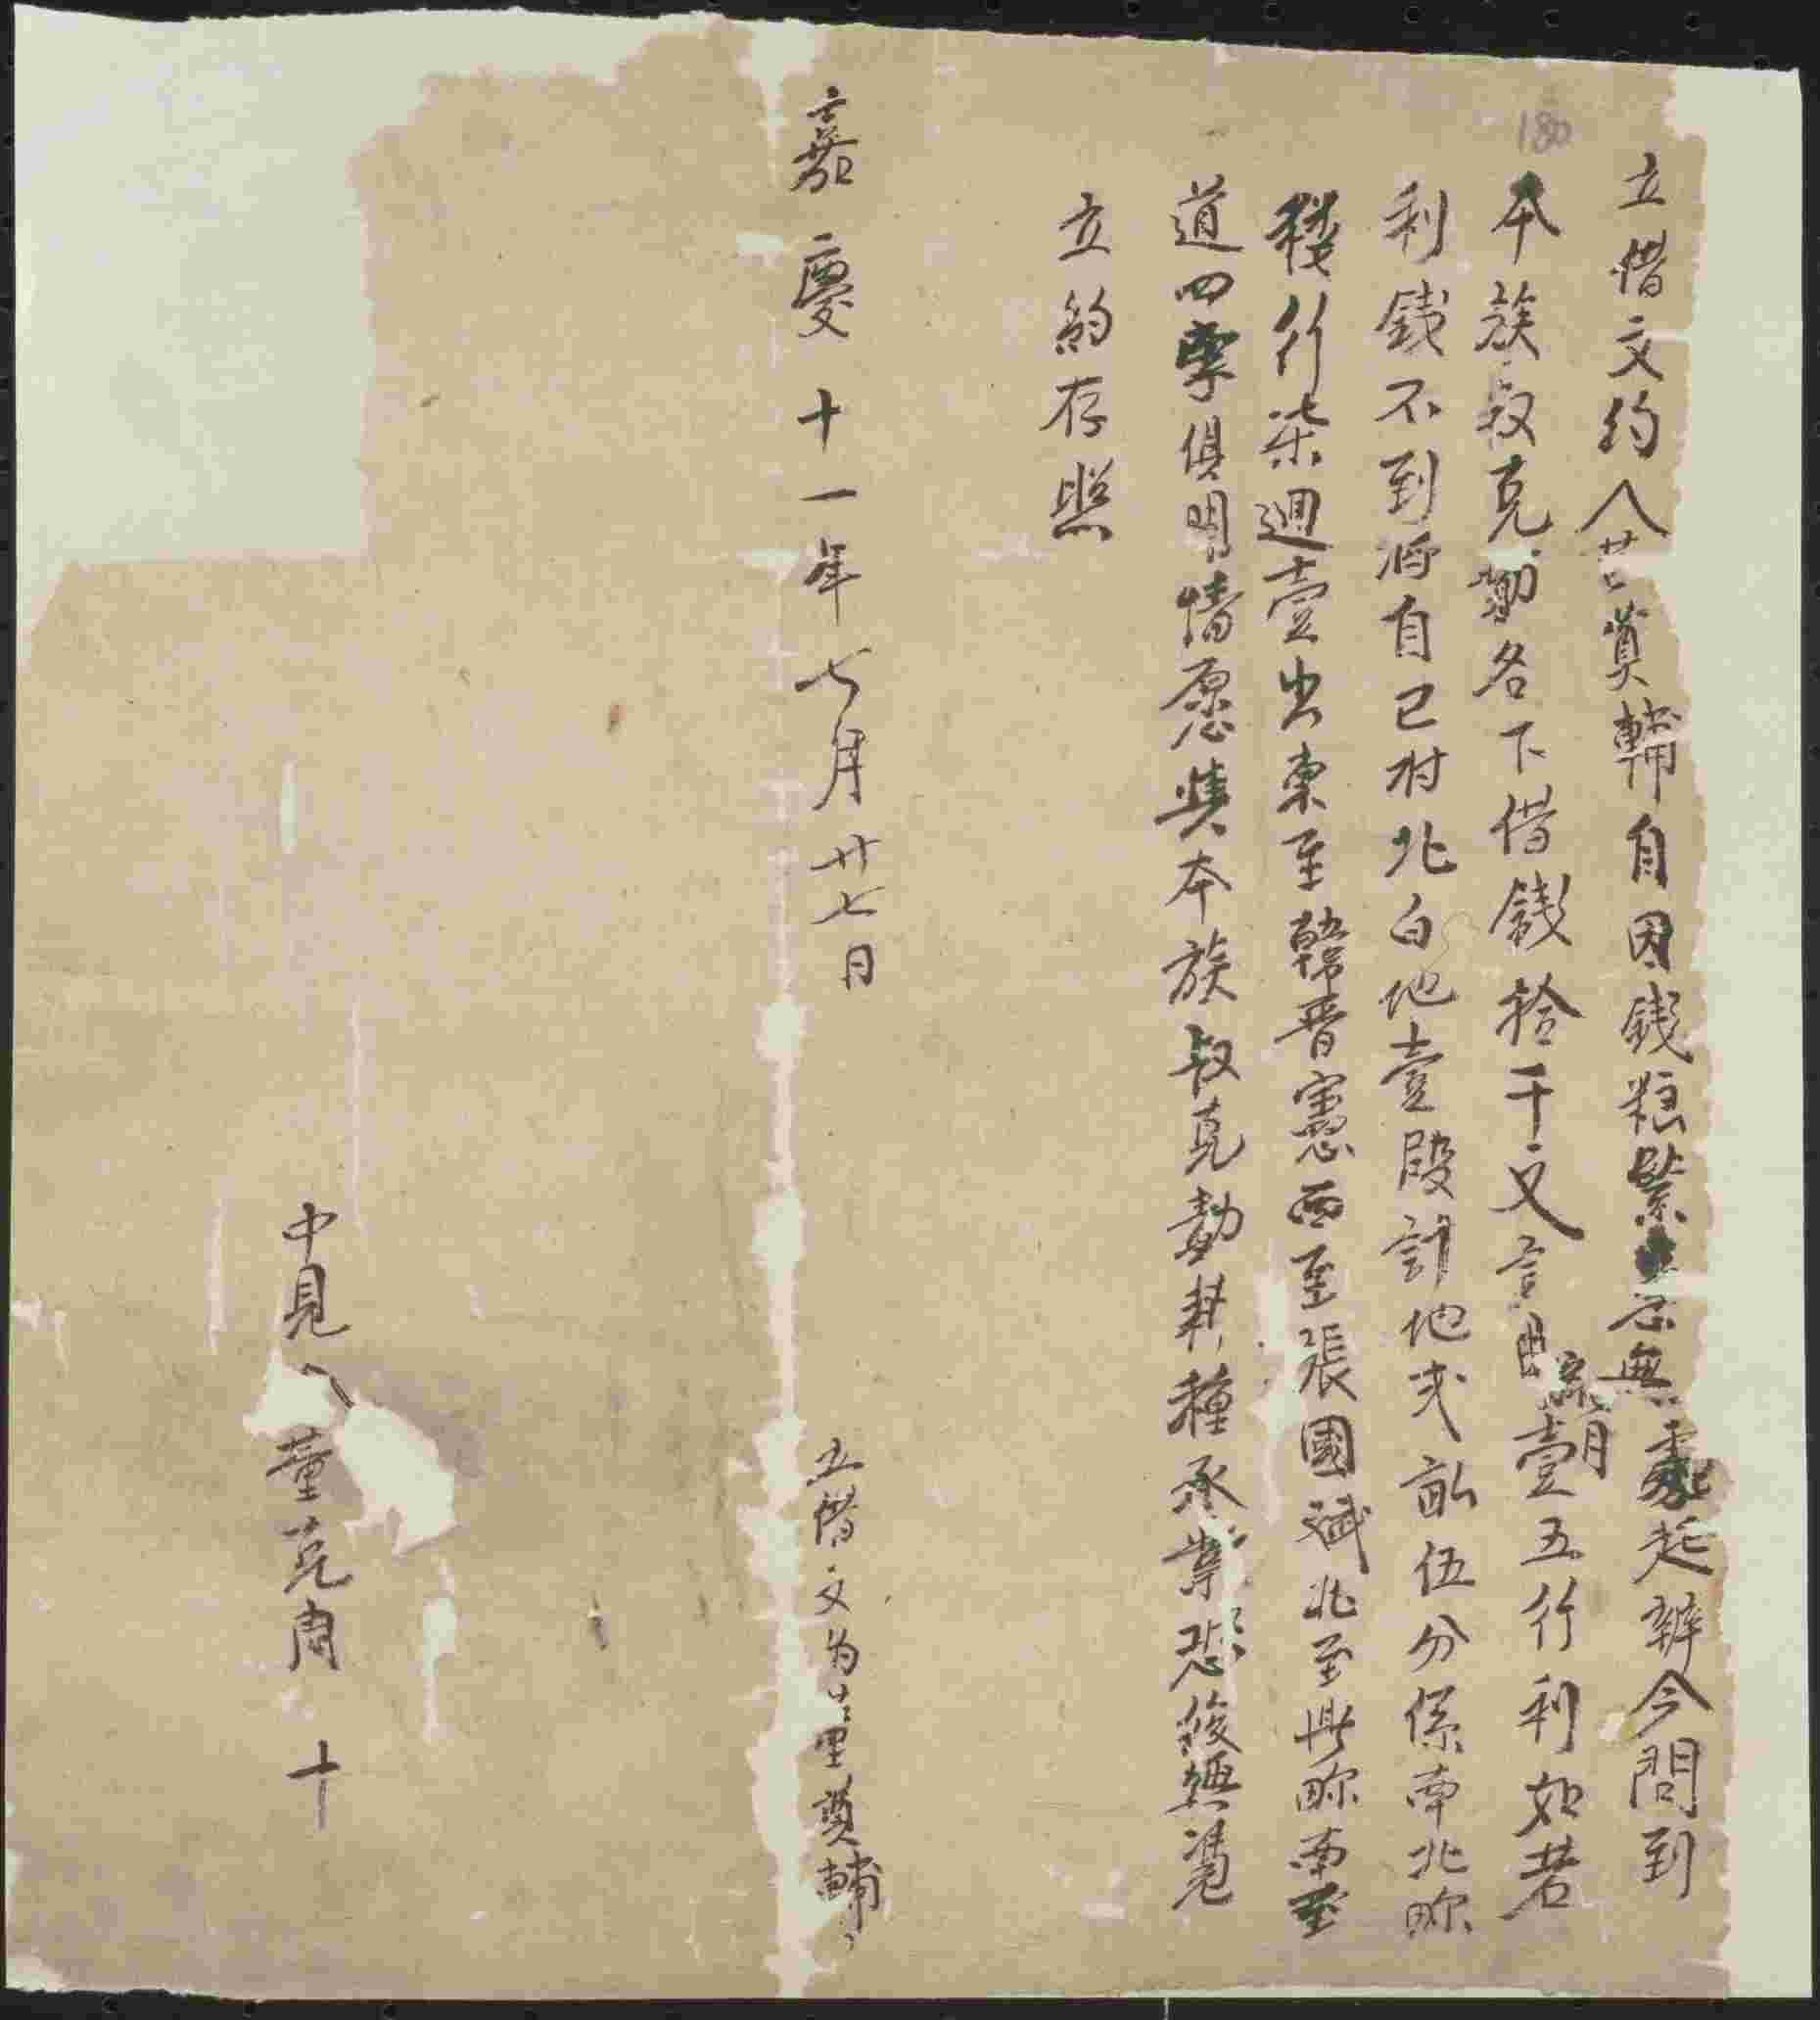 180
立借文約人董奠輔自因錢粮緊急無處起辦今問到
本族叔克勳名下借錢拾千文言明每月壹五行利如若
利錢不到将自己村北白地壹段計地弍畝伍分係南北畛
行柒迴壹出東至韓晋憲西至張國斌北至畛南至
道四至俱明情愿與本族叔克勳耕種承業恐後無凭
立約存照
嘉慶十一年七月廿七日
立借文约董奠輔
中見人 董克 十